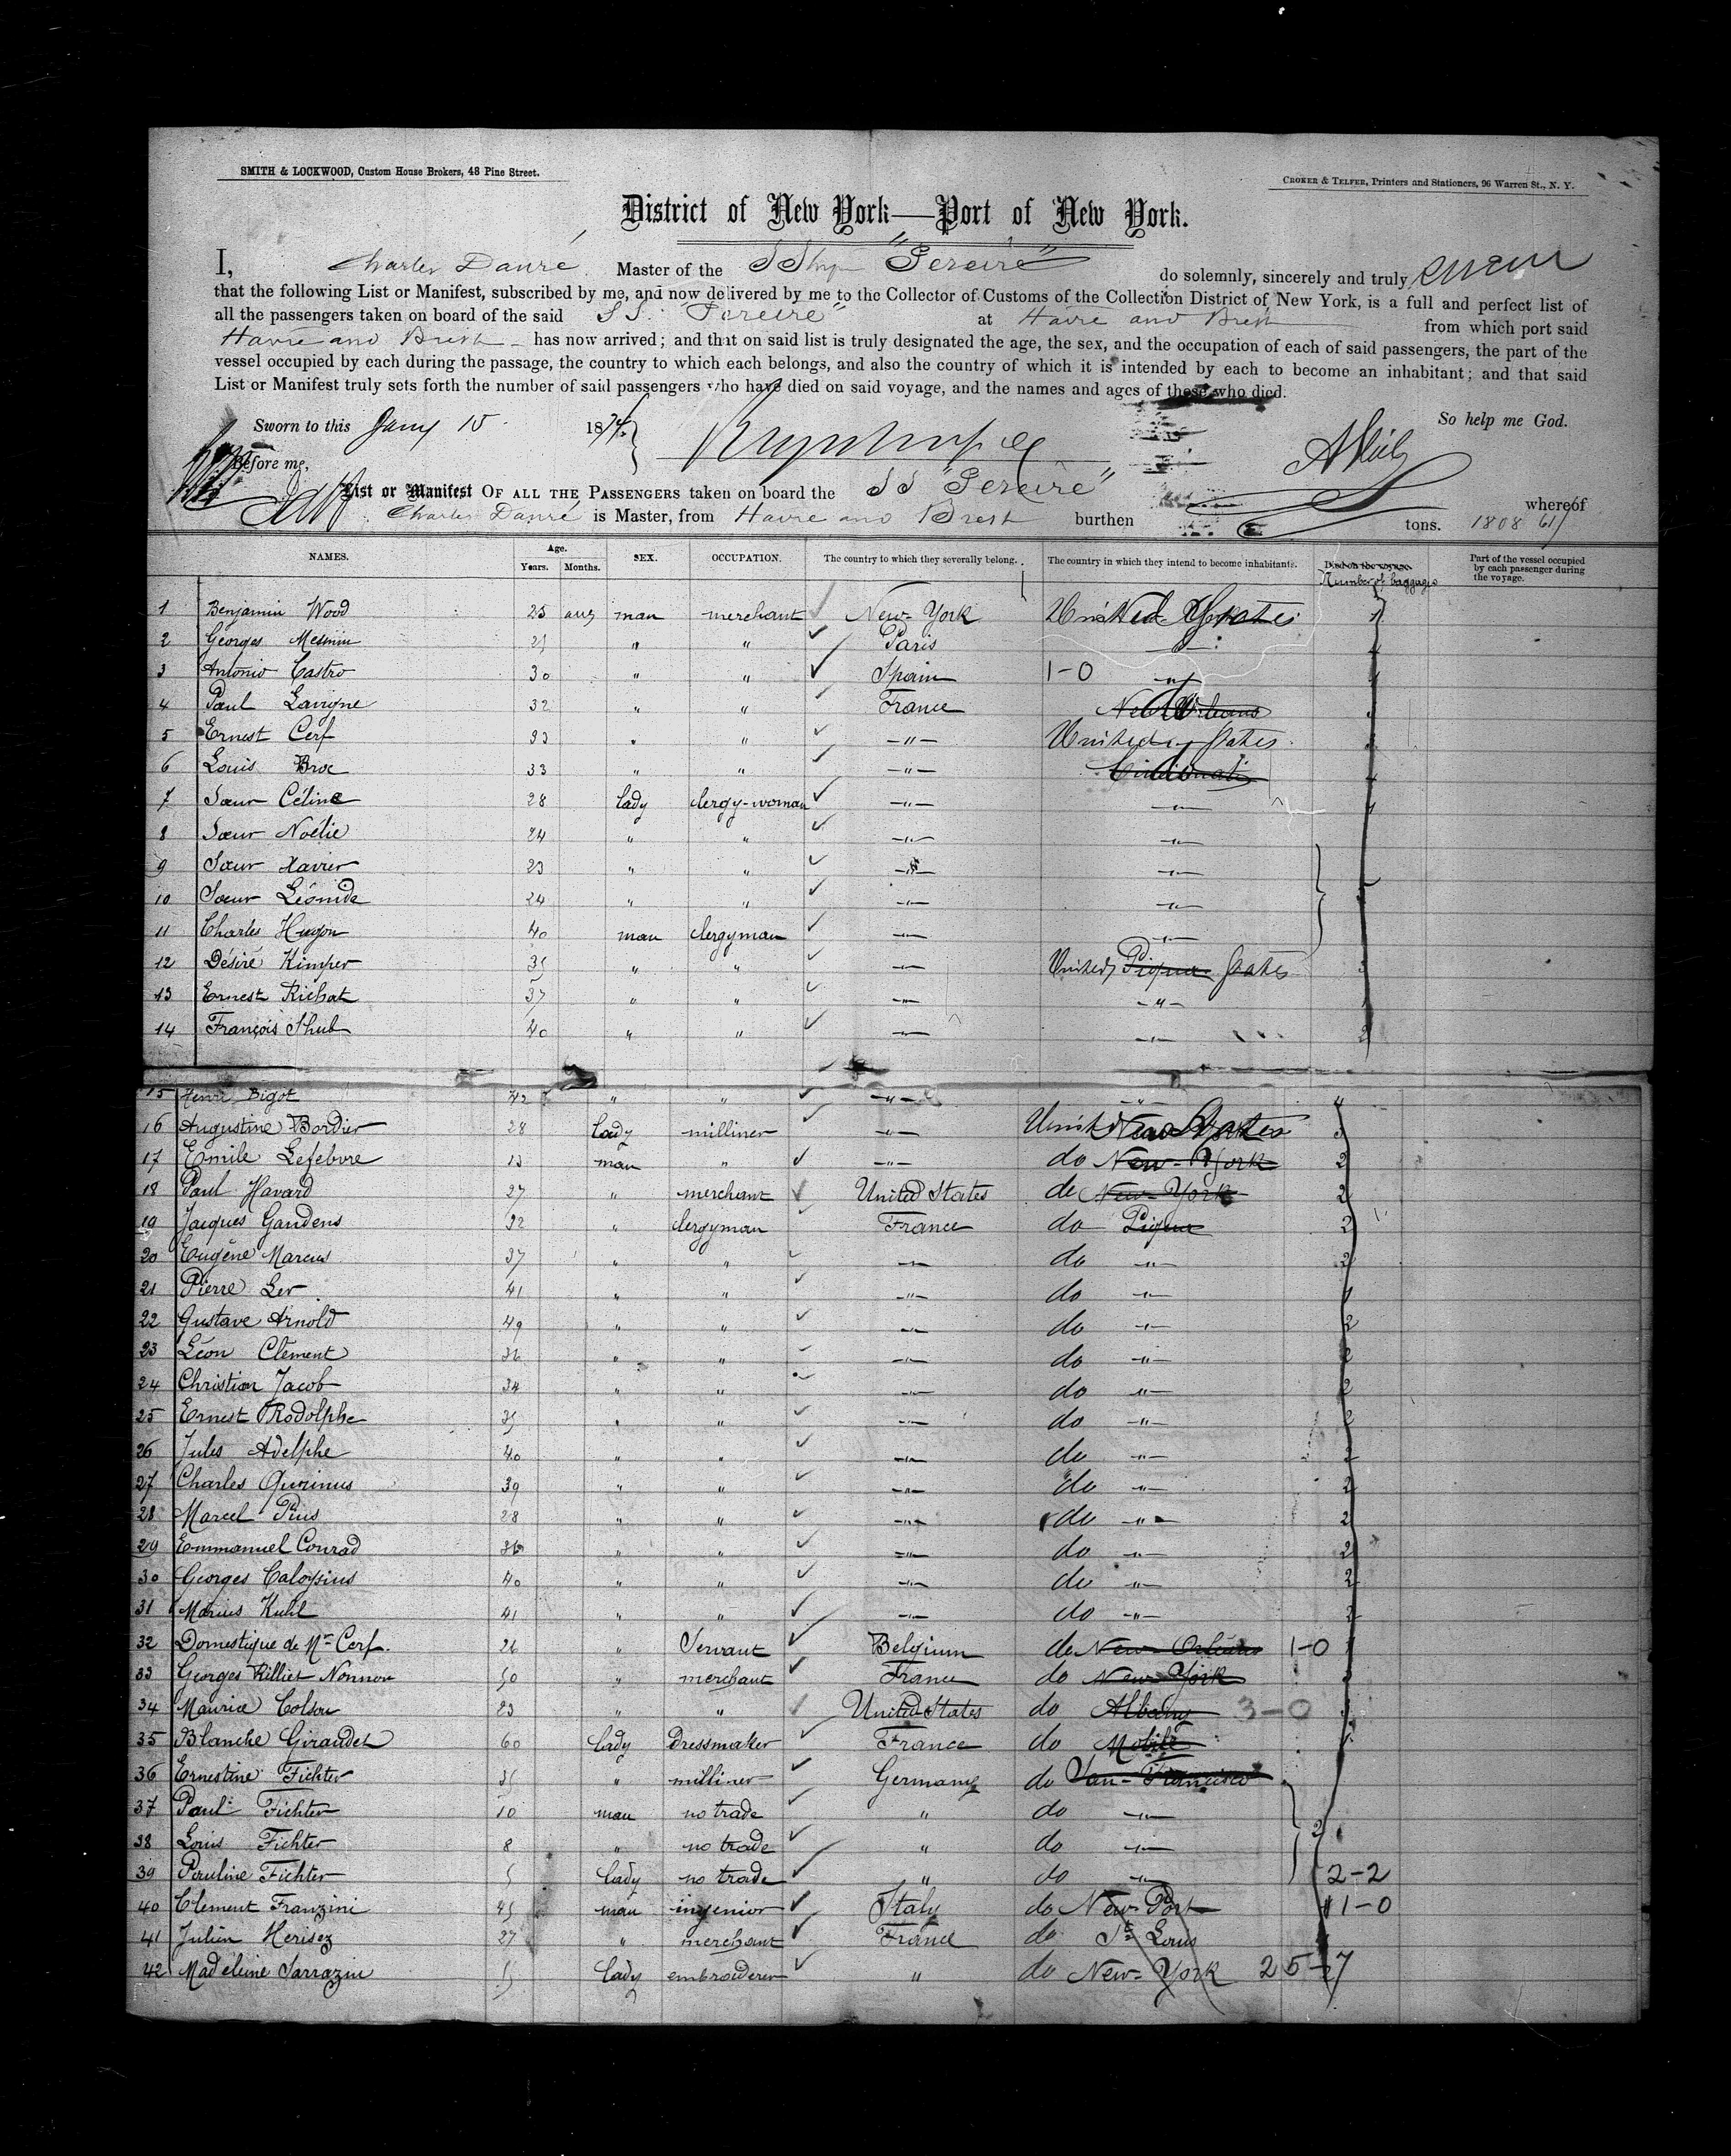 SMITH & LOCKWOOD, Custom House Brokers, 48 Pine Street.
CROKER & TELFER, Printers and Stationers, 96 Warren St., N. Y.
District of New York—Port of New York.
I, Charles Danré Master of the SShip "Pereire" do solemnly, sincerely and truly swear
that the following List or Manifest, subscribed by me, and now delivered by me to the Collector of Customs of the Collection District of New York, is a full and perfect list of
all the passengers taken on board of the said SS. "Pereire" at Havre and Brest from which port said
Havre and Brest has now arrived; and that on said list is truly designated the age, the sex, and the occupation of each of said passengers, the part of the
vessel occupied by each during the passage, the country to which each belongs, and also the country of which it is intended by each to become an inhabitant; and that said
List or Manifest truly sets forth the number of said passengers who have died on said voyage, and the names and ages of those who died.
Sworn to this Jany 15 1874. So help me God.
Before me,
List or Manifest OF ALL THE PASSENGERS taken on board the SS "Pereire" whereof
Charles Danré is Master, from Havre and Brest burthen tons. 1808 61/
NAMES. Age. Years. Months. SEX. OCCUPATION. The country to which they severally belong. The country in which they intend to become inhabitants. Died on the voyage. Number of baggages Part of the vessel occupied by each passenger during the voyage.
1 Benjamin Wood 25 man merchant New-York United States
2 Georges " " Paris "
3 Antonio Castro 30 " " Spain 1-0 "
4 Paul Lavigne 32 " " France New Orleans
5 Ernest Cerf 33 " " " United States
6 Louis Broc 33 " " " Cincinnati
7 Sœur Céline 28 lady clergy-woman " "
8 Sœur Noélie 24 " " " "
9 Sœur Xavier 23 " " " "
10 Sœur Léonide 24 " " " "
11 Charles Hugon 40 man clergyman " "
12 Désiré Kimper 35 " " " United Piqua States
13 Ernest Richat 37 " " " "
14 François Shub 40 " " " " 2
15 Henri Bigot 42 " " " " 4
16 Augustine Bordier 28 lady milliner " United States New York 3
17 Emile Lefebvre 13 man " " do New-York 2
18 Paul Havard 27 " merchant United States do New-York 2
19 Jacques Gaudens 32 " clergyman France do Piqua 2
20 Eugène Marcus 37 " " " do " 2
21 Pierre Ler 41 " " " do " 1
22 Gustave Arnold 49 " " " do " 2
23 Léon Clement 36 " " " do " 2
24 Christian Jacob 34 " " " do " 2
25 Ernest Rodolphe 35 " " " do " 2
26 Jules Adelphe 40 " " " do " 2
27 Charles Quirinus 39 " " " do " 2
28 Marcel Pius 28 " " " do " 2
29 Emmanuel Conrad 36 " " " do " 2
30 Georges Caloysius 40 " " " do " 2
31 Marius Kuhl 41 " " " do " 2
32 Domestique de Mr Cerf. 26 " Servant Belgium do New-Orleans 1-0
33 Georges Rilliet Nonnon 50 " merchant France do New York
34 Maurice Colson 23 " " United States do Albany 3-0
35 Blanche Giraudet 60 lady dressmaker France do Mobile
36 Ernestine Fichter 35 " milliner Germany do San-Francisco
37 Paul Fichter 10 man no trade " do "
38 Louis Fichter 8 " no trade " do " 2
39 Pauline Fichter 5 lady no trade " do " 2-2
40 Clement Franzini 45 man ingenior Italy do New-Port 1-0
41 Julien Herisez 27 " merchant France do St Louis
42 Madeleine Sarrazin lady embroiderer " do New-York 25-27